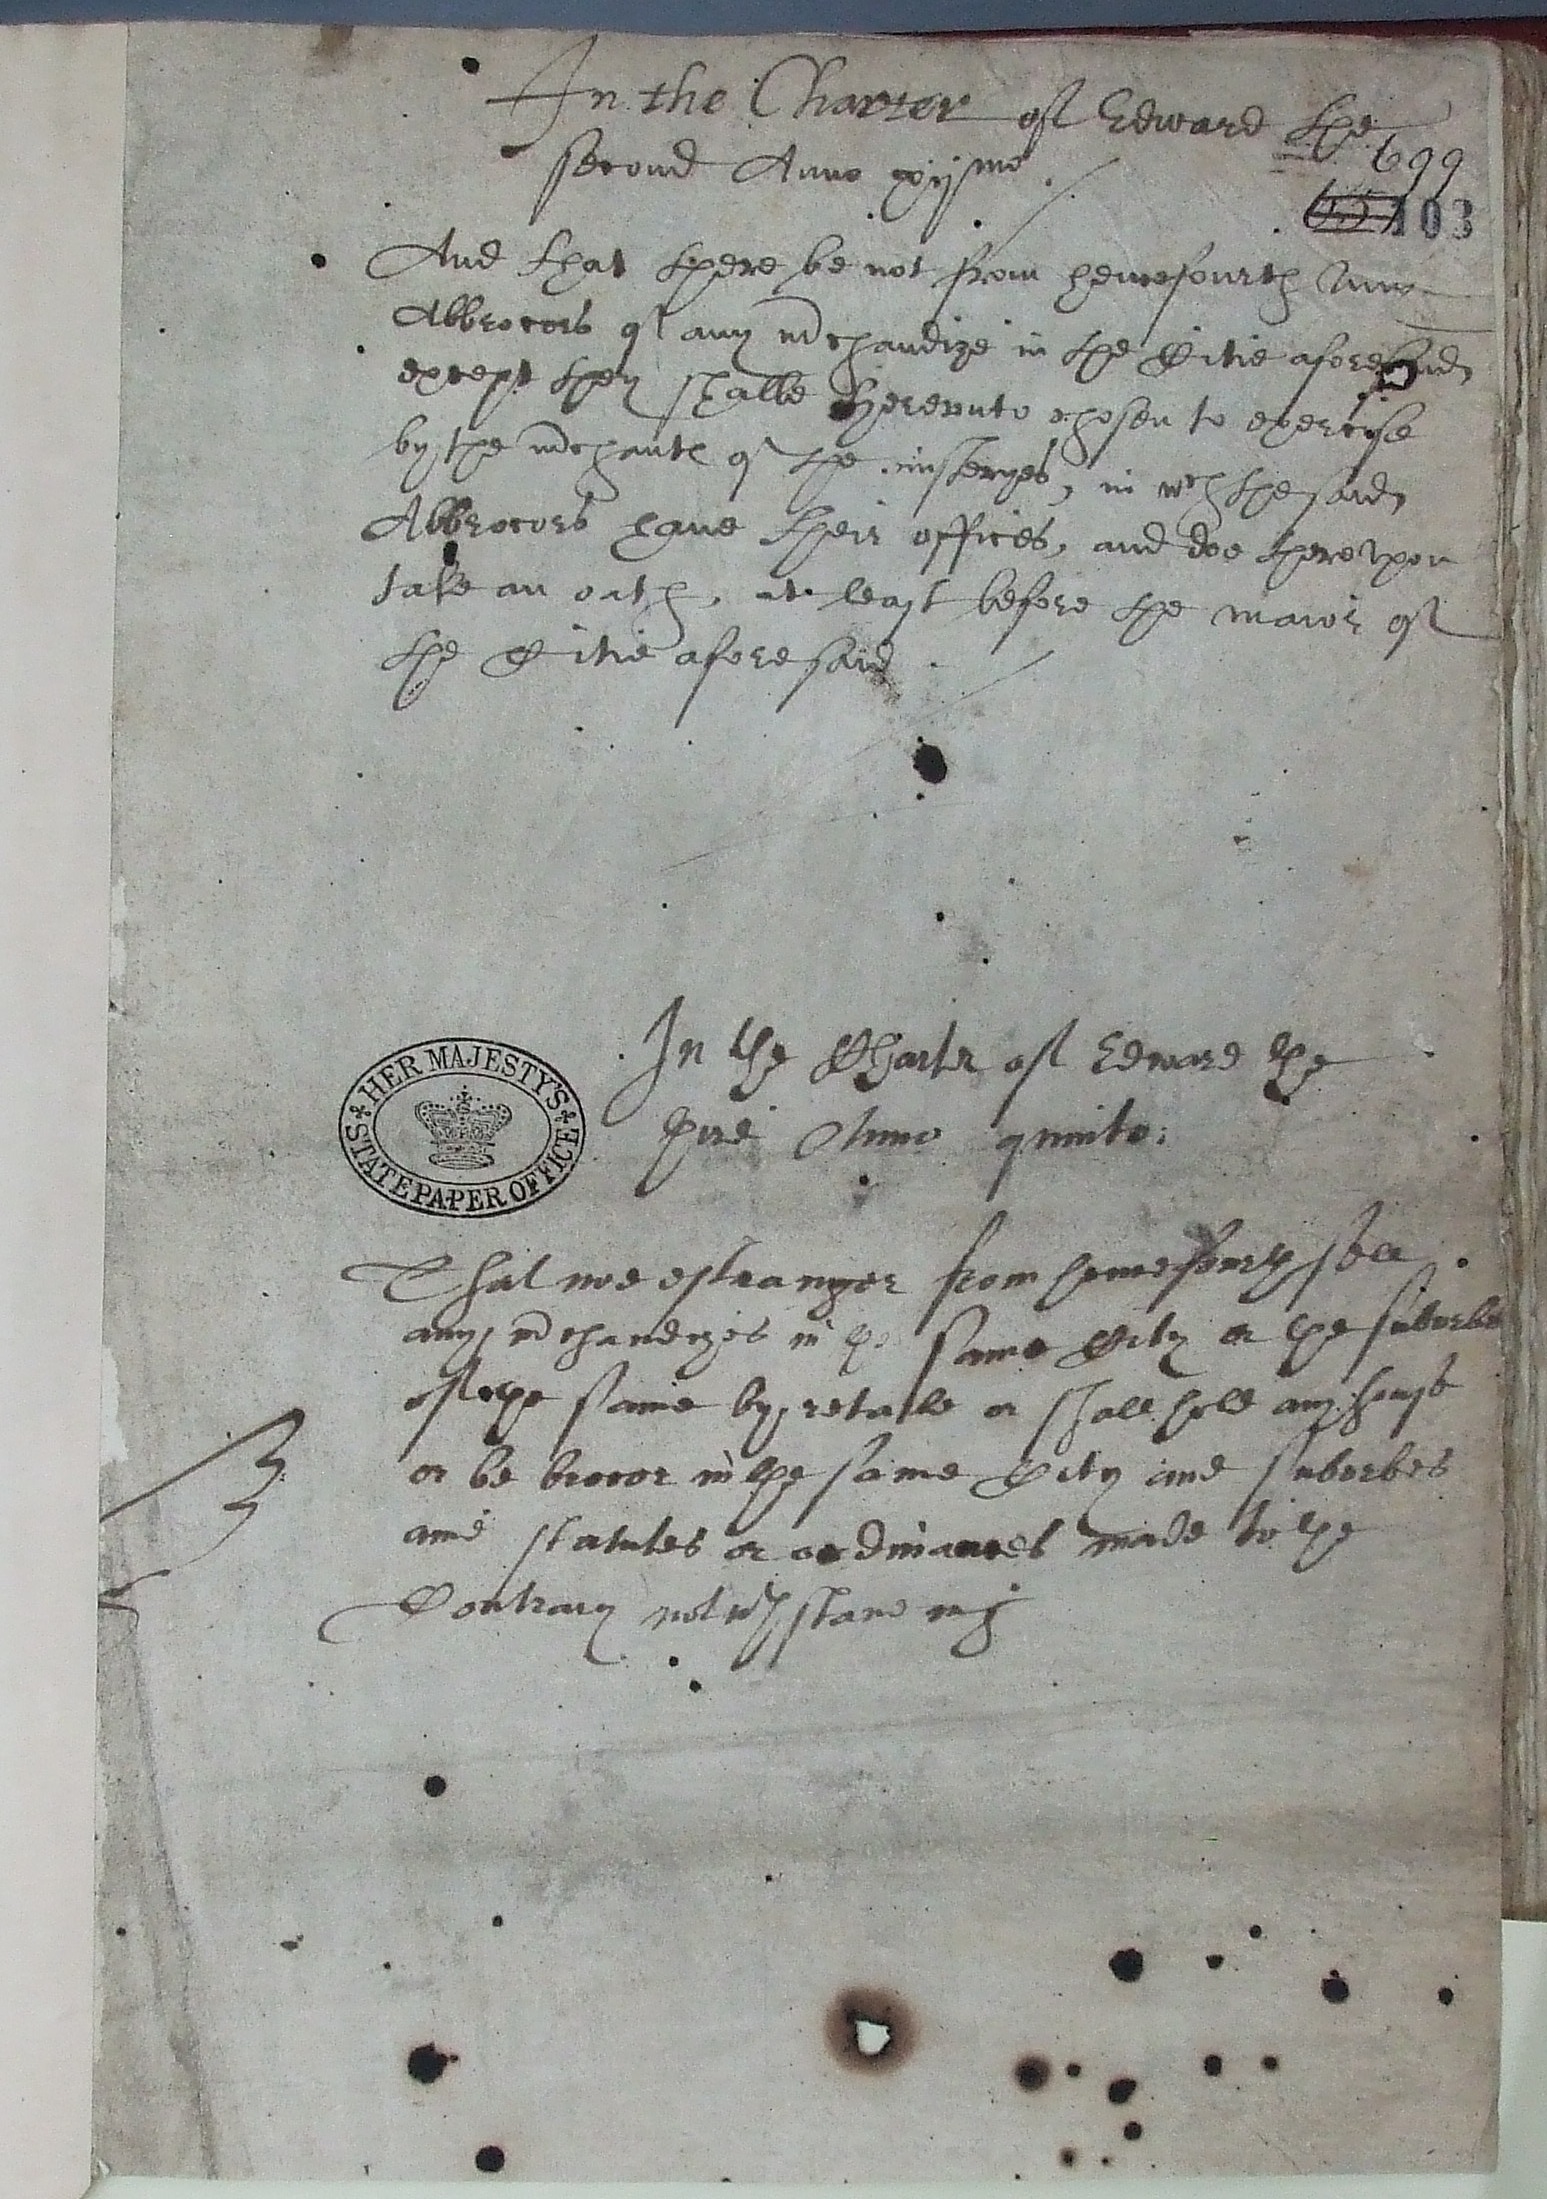 In the Charter of Edward the
second Anno xijmo.
699
103
And that there be not from hencefourth anie
Abbrocors of any mchandize in the Citie aforesaid
except they shalbe hereunto chosen to exercise
by the mchants of the misteryes, in wch the said
Abbrocors have their offices, and doe thereupon
take an oath, at least before the maior of
the Citie aforesaid.
In the Charter of Edward the
Anno quinto:
HER MAJESTY'S STATE PAPER OFFICE
That noe estranger from henceforth sell
any mchandizes in the same City or the suburbes
of the same by retaile or shall hold any house
or be brocor in the same City and suburbes
anie statutes or ordinances made to the
Contrary notwthstanding